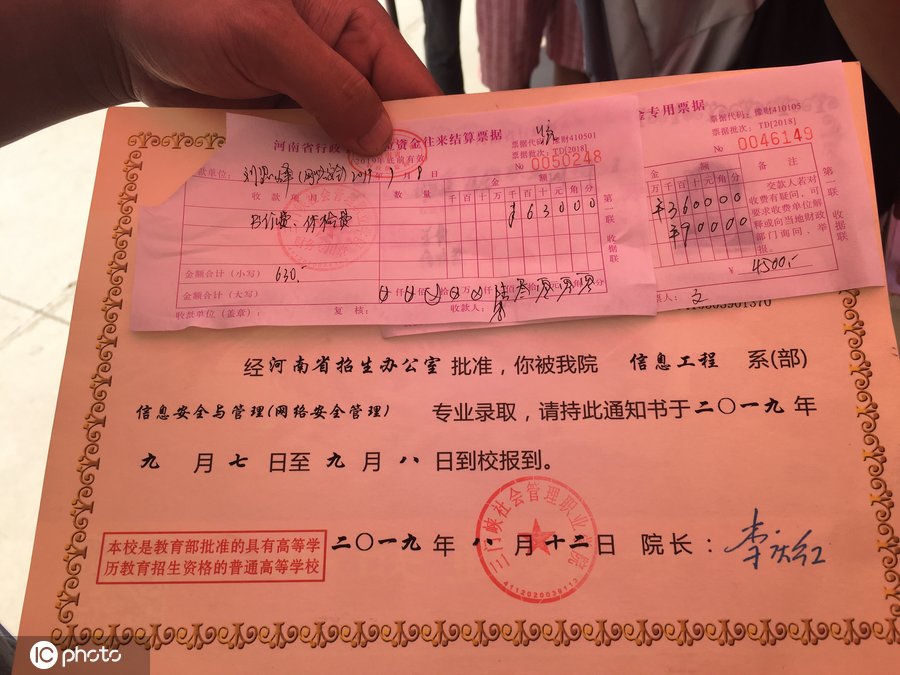 河南省行政
资金往来结算票据
票据代码:豫财410501
票据批次:TD[2018]
№ 0050248
2019年底前有效
款单位:
收款项目
数量
金额
千百十万千百十元角分
¥63000
书价费、体检费
金额合计(小写) 630.-
金额合计(大写)
收款单位(盖章):
复核:
收款人:
第一联
收据联
专用票据
票据代码:豫财410105
票据批次:TD[2018]
№ 0046149
金额
备注
万千百十元角分
¥360000
¥90000
交款人若对
收费有疑问,可
要求收费单位解
释或向当地财政
部门询问、举
报。
¥ 4500.-
第一联
收据联
经河南省招生办公室批准,你被我院 信息工程 系(部)
信息安全与管理(网络安全管理) 专业录取,请持此通知书于二〇一九年
九月七日至九月八日到校报到。
本校是教育部批准的具有高等学
历教育招生资格的普通高等学校
二〇一九年八月十二日 院长:李庆红
三门峡社会管理职业学院
IC photo